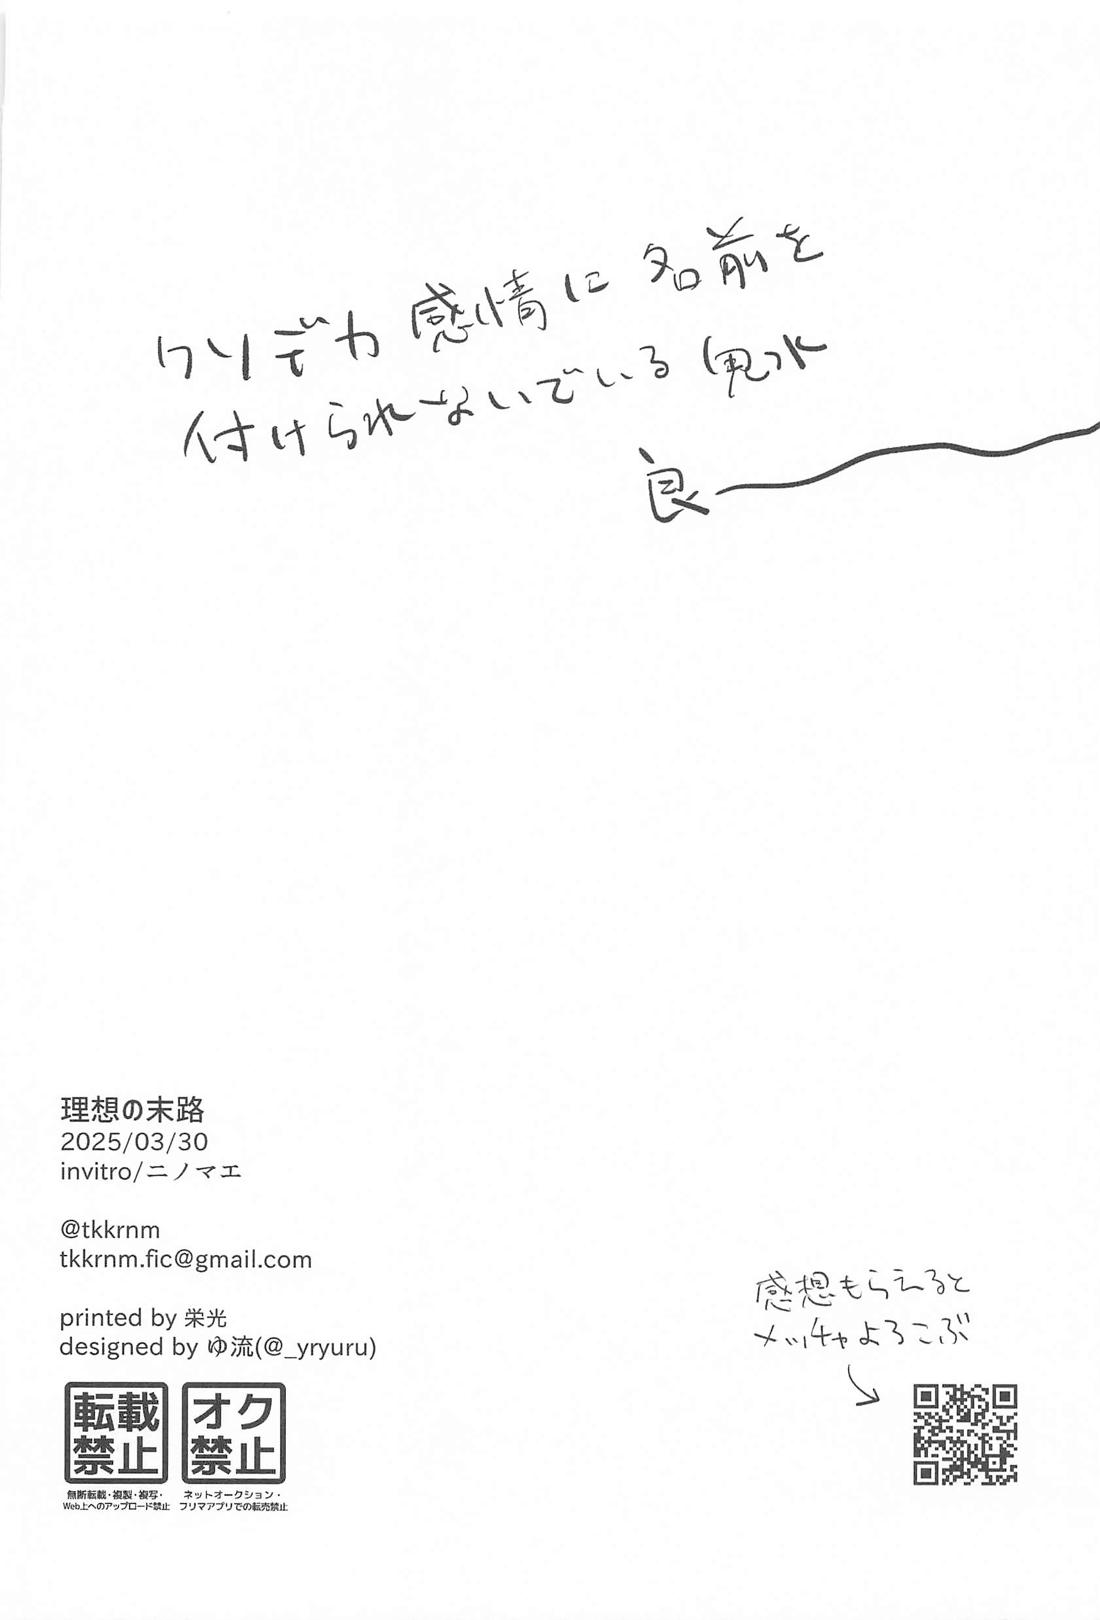 クソデカ感情に名前を
付けられないでいる鬼水
良
理想の末路
2025/03/30
invitro/ニノマエ
@tkkrnm
tkkrnm.fic@gmail.com
printed by 栄光
designed by ゆ流(@_yryuru)
転載
禁止
無断転載・複製・複写・
Web上へのアップロード禁止
オク
禁止
ネットオークション・
フリマアプリでの転売禁止
感想もらえると
メッチャよろこぶ